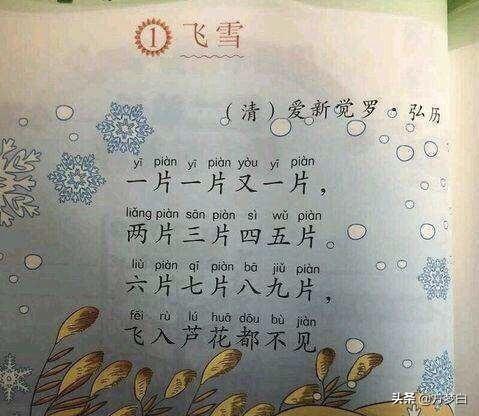 1 飞雪
（清）爱新觉罗·弘历
yī piàn yī piàn yòu yī piàn
一片一片又一片，
liǎng piàn sān piàn sì wǔ piàn
两片三片四五片
liù piàn qī piàn bā jiǔ piàn
六片七片八九片，
fēi rù lú huā dōu bù jiàn
飞入芦花都不见
头条@方梦白